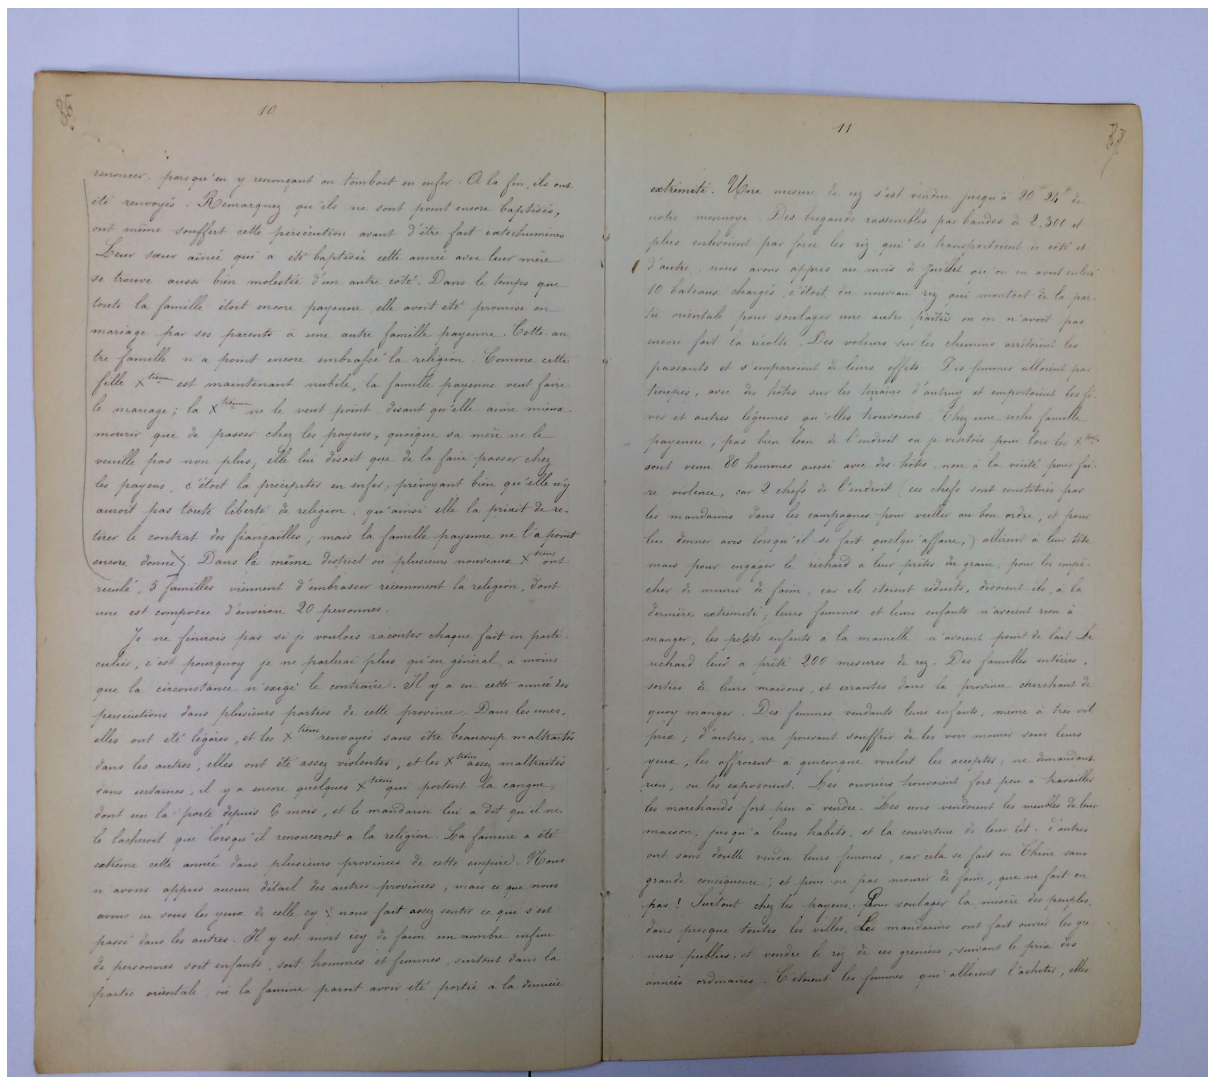 10
renoncer, parsqu'en y renonçant on tomboit en enfer. A la fin, ils ont
été renvoyés. Remarquez qu'ils ne sont point encore baptisés,
ont même souffert cette persécution avant d'être fait catechumènes
Leur sœur ainée qui a été baptisée cette année avec leur mère
se trouve aussi bien molestée d'un autre côté. Dans le temps que
toute la famille étoit encore payenne elle avoit été promise en
mariage par ses parents à une autre famille payenne. Cette au
tre famille n'a point encore embrassé la religion. Comme cette
fille Xtienne est maintenant nubile, la famille payenne veut faire
le mariage; la Xtienne ne le veut point disant qu'elle aime mieux
mourir que de passer chez les payens, quoique sa mère ne le
veuille pas non plus, elle lui disoit que de la faire passer chez
les payens, c'étoit la précipiter en enfer, prévoyant bien qu'elle n'y
auroit pas toute liberté de religion; qu'ainsi elle la prioit de re-
tirer le contrat des fiançailles; mais la famille payenne ne l'a point
encore donné. Dans le même district où plusieurs nouveaux Xtiens ont
reculé, 5 familles viennent d'embrasser récemment la religion, dont
une est composée d'environ 20 personnes.
Je ne finirois pas si je voulois raconter chaque fait en parti-
culier, c'est pourquoy je ne parlerai plus qu'en général, à moins
que la circonstance n'exige le contraire. Il y a eu cette année des
persécutions dans plusieurs parties de cette province. Dans les unes,
elles ont été légères, et les Xtiens renvoyés sans être beaucoup maltraités
dans les autres, elles ont été assez violentes, et les Xtiens assez maltraités
dans certaines, il y a encore quelques Xtiens qui portent la cangue,
dont un la porte depuis 6 mois, et le mandarin lui a dit qu'il ne
le lacheroit que lorsqu'il renonceroit à la religion. La famine a été
extrême cette année dans plusieurs provinces de cette empire. Nous
n'avons appris aucun détail des autres provinces, mais ce que nous
avons eu sous les yeux de celle cy; nous fait assez sentir ce qui s'est
passé dans les autres. Il y est mort icy de faim un nombre infini
de personnes soit enfants, soit hommes et femmes, surtout dans la
partie orientale où la famine paroit avoir été portée à la dernière
11
extrémité. Une mesure de riz s'est vendue jusqu'à 20 24 de
notre monnoye. Des brigands rassemblés par bandes de 2,300 et
plus enlevoient par force les riz qui se transportoient de côté et
d'autre, nous avons appris au mois de Juillet qu'on en avoit enlevé
10 bateaux chargés, c'étoit du nouveau riz qui montoit de la par-
tie orientale pour soulager une autre partie où on n'avoit pas
encore fait la récolte. Des voleurs sur les chemins arrêtoient les
passants et s'emparoient de leurs effets. Des femmes alloient par
troupes, avec des hôtes sur les terrains d'autruy et emportoient les fè-
ves et autres légumes qu'elles trouvoient. Chez une riche famille
payenne, pas bien loin de l'endroit où je visitois pour lors les Xtiens
sont venu 80 hommes aussi avec des hôtes, non à la vérité pour fai-
re violence, car 2 chefs de l'endroit (ces chefs sont constitués par
les mandarins dans les campagnes pour veiller au bon ordre, et pour
lui donner avis lorsqu'il se fait quelqu'affaire,) allèrent à leur tête
mais pour engager le richard à leur prêter du grain, pour les empê-
cher de mourir de faim, car ils étoient réduits, disoient ils, à la
dernière extrémité; leurs femmes et leurs enfants n'avoient rien à
manger, les petits enfants à la mamelle n'avoient point de lait. Le
richard leur a prêté 200 mesures de riz. Des familles entières,
sorties de leurs maisons, et errantes dans la province cherchant de
quoy manger. Des femmes vendants leurs enfants, même à très vil
prix; d'autres, ne pouvant souffrir de les voir mourir sous leurs
yeux, les offroient à quiconque vouloit les accepter, ne demandant
rien, ou les exposoient. Les ouvriers trouvoient fort peu à travailler
les marchands fort peu à vendre. Les uns vendoient les meubles de leur
maison, jusqu'à leurs habits, et la couverture de leur lit. d'autres
ont sans doutte vendu leurs femmes, car cela se fait en Chine sans
grande conséquence; et pour ne pas mourir de faim, que ne fait on
pas! Surtout chez les payens. Pour soulager la misère des peuples,
dans presque toutes les villes, Les mandarins ont fait ouvrir les gre
niers publics, et vendre le riz de ces greniers, suivant le prix des
années ordinaires. C'étoient les femmes qui alloient l'acheter, elles